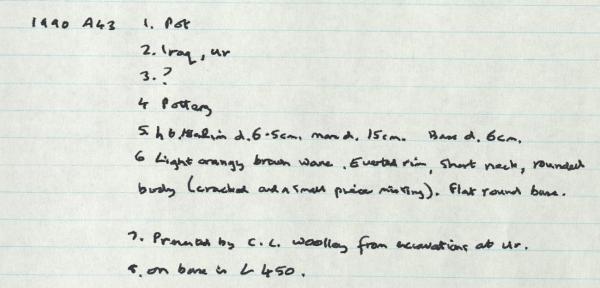 1990 A43 1. Pot
2. Iraq, Ur
3. ?
4 Pottery
5. h 6. rim d. 6.5cm. max d. 15cm. Base d. 6cm.
6 Light orangy brown ware. Everted rim, short neck, rounded
body (cracked and a small piece missing). Flat round base.
7. Presented by C. L. Woolley from excavations at Ur.
8. on base is L 450.